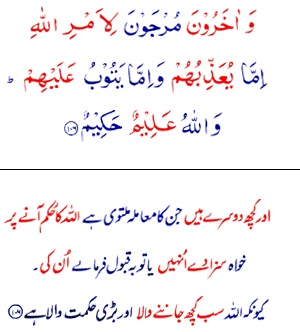 وَاٰخَرُوْنَ مُرْجَوْنَ لِاَمْرِ اللّٰهِ
اِمَّا يُعَذِّبُهُمْ وَاِمَّا يَتُوْبُ عَلَيْهِمْ ؕ
وَاللّٰهُ عَلِيْمٌ حَكِيْمٌ ﴿۱۰۶﴾
اور کچھ دوسرے ہیں جن کا معاملہ ملتوی ہے اللہ کا حکم آنے پر
خواہ سزا دے اُنہیں یا توبہ قبول فرمالے اُن کی۔
کیونکہ اللہ سب کچھ جاننے والا اور بڑی حکمت والا ہے ﴿۱۰۶﴾